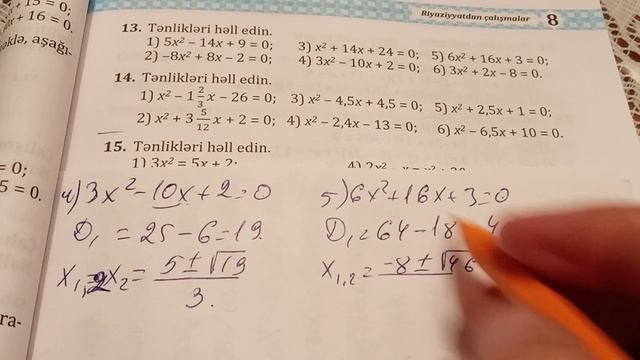 Riyaziyyatdan çalışmalar 8
13. Tənlikləri həll edin.
1) 5x² − 14x + 9 = 0; 3) x² + 14x + 24 = 0; 5) 6x² + 16x + 3 = 0;
2) −8x² + 8x − 2 = 0; 4) 3x² − 10x + 2 = 0; 6) 3x² + 2x − 8 = 0.
14. Tənlikləri həll edin.
1) x² − 1 2/3 x − 26 = 0; 3) x² − 4,5x + 4,5 = 0; 5) x² + 2,5x + 1 = 0;
2) x² + 3 5/12 x + 2 = 0; 4) x² − 2,4x − 13 = 0; 6) x² − 6,5x + 10 = 0.
15. Tənlikləri həll edin.
1) 3x² = 5x + 2;
+ 16 = 0.
aşağı
= 0;
5 = 0.
ra-
4) 3x² − 10x + 2 = 0
D₁ = 25 − 6 = 19
x₁, x₂ = 5 ± √19 / 3.
5) 6x² + 16x + 3 = 0
D₁ = 64 − 18 = 4
x₁,₂ = −8 ± √46